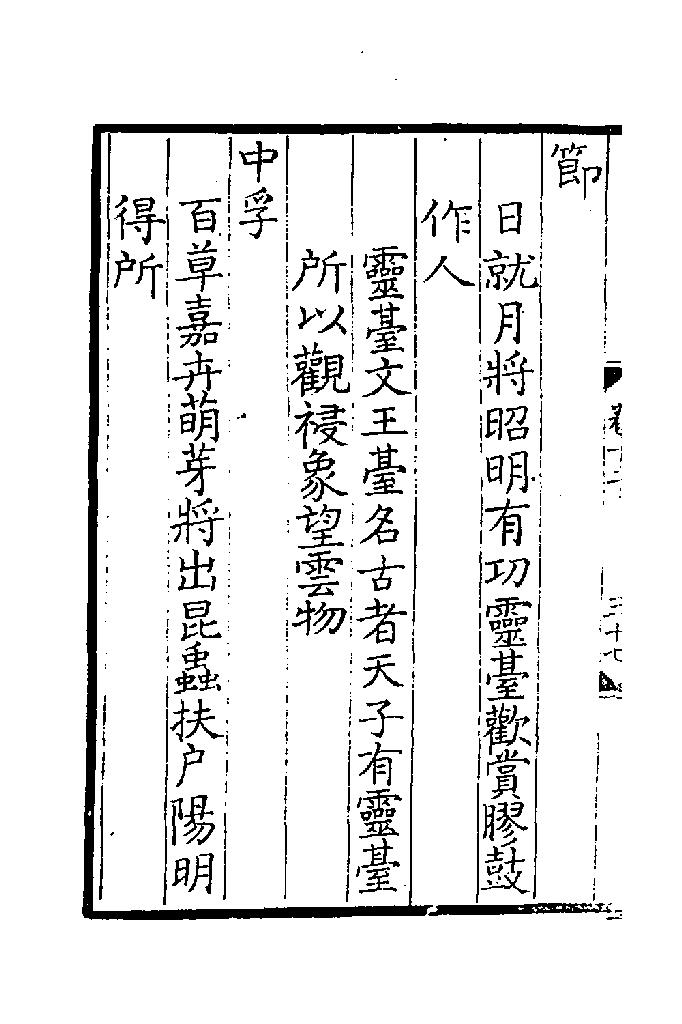 節
日就月將昭明有功靈臺歡賞膠鼓
作人
靈臺文王臺名古者天子有靈臺
所以觀祲象望雲物
中孚
百草嘉卉萌芽將出昆蟲扶户陽明
得所
三十七